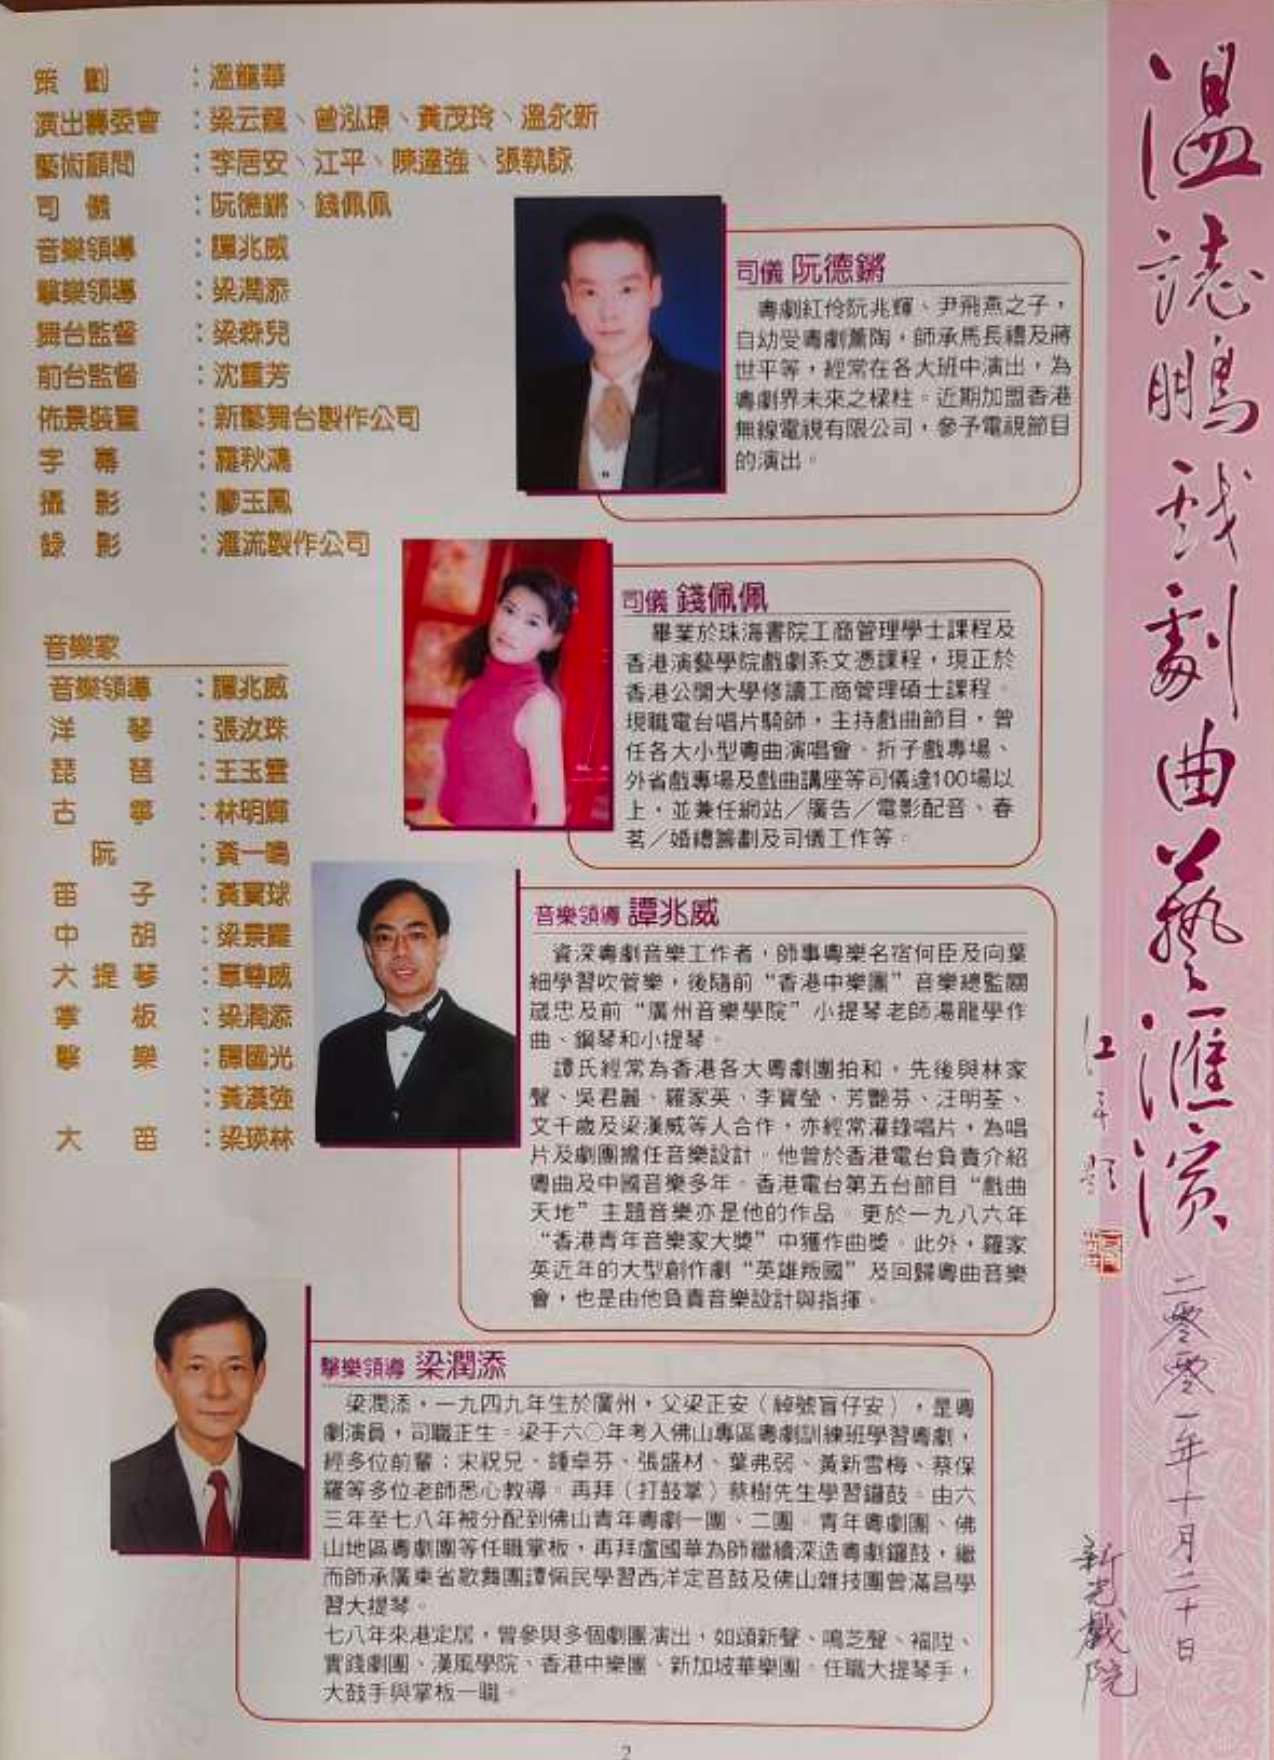 策劃：溫龍華
演出籌委會：梁云龍、曾泓璟、黃茂玲、溫永新
藝術顧問：李居安、江平、陳達強、張執詠
司儀：阮德鏘、錢佩佩
音樂領導：譚兆威
擊樂領導：梁潤添
舞台監督：梁森兒
前台監督：沈重芳
佈景裝置：新藝舞台製作公司
字幕：羅秋鴻
攝影：廖玉鳳
錄影：滙流製作公司
音樂家
音樂領導：譚兆威
洋琴：張汝珠
琵琶：王玉雲
古箏：林明輝
阮：黃一鳴
笛子：黃寶球
中胡：梁景耀
大提琴：覃尊威
掌板：梁潤添
擊樂：譚國光
：黃漢強
大笛：梁瑛林
司儀 阮德鏘
粵劇紅伶阮兆輝、尹飛燕之子，
自幼受粵劇薰陶，師承馬長禮及蔣
世平等，經常在各大班中演出，為
粵劇界未來之樑柱。近期加盟香港
無線電視有限公司，參予電視節目
的演出。
司儀 錢佩佩
畢業於珠海書院工商管理學士課程及
香港演藝學院戲劇系文憑課程，現正於
香港公開大學修讀工商管理碩士課程。
現職電台唱片騎師，主持戲曲節目，曾
任各大小型粵曲演唱會、折子戲專場、
外省戲專場及戲曲講座等司儀達100場以
上，並兼任網站／廣告／電影配音、春
茗／婚禮籌劃及司儀工作等。
音樂領導 譚兆威
資深粵劇音樂工作者，師事粵樂名宿何臣及向葉
細學習吹管樂，後隨前“香港中樂團”音樂總監關
迺忠及前“廣州音樂學院”小提琴老師湯龍學作
曲、鋼琴和小提琴。
譚氏經常為香港各大粵劇團拍和，先後與林家
聲、吳君麗、羅家英、李寶瑩、芳艷芬、汪明荃、
文千歲及梁漢威等人合作，亦經常灌錄唱片，為唱
片及劇團擔任音樂設計。他曾於香港電台負責介紹
粵曲及中國音樂多年。香港電台第五台節目“戲曲
天地”主題音樂亦是他的作品。更於一九八六年
“香港青年音樂家大獎”中獲作曲獎。此外，羅家
英近年的大型創作劇“英雄叛國”及回歸粵曲音樂
會，也是由他負責音樂設計與指揮。
擊樂領導 梁潤添
梁潤添，一九四九年生於廣州，父梁正安（綽號盲仔安），是粵
劇演員，司職正生。梁于六〇年考入佛山專區粵劇訓練班學習粵劇，
經多位前輩：宋祝兄、鍾卓芬、張盛材、葉弗弱、黃新雪梅、蔡保
羅等多位老師悉心教導。再拜（打鼓掌）蔡樹先生學習鑼鼓。由六
三年至七八年被分配到佛山青年粵劇一團、二團。青年粵劇團、佛
山地區粵劇團等任職掌板，再拜盧國華為師繼續深造粵劇鑼鼓，繼
而師承廣東省歌舞團譚佩民學習西洋定音鼓及佛山雜技團曾滿昌學
習大提琴。
七八年來港定居，曾參與多個劇團演出，如頌新聲、鳴芝聲、福陞、
實踐劇團、漢風學院、香港中樂團、新加坡華樂團。任職大提琴手，
大鼓手與掌板一職。
溫誌鵬戲劇曲藝滙演
江平題
二零零一年十月二十日
新光戲院
2